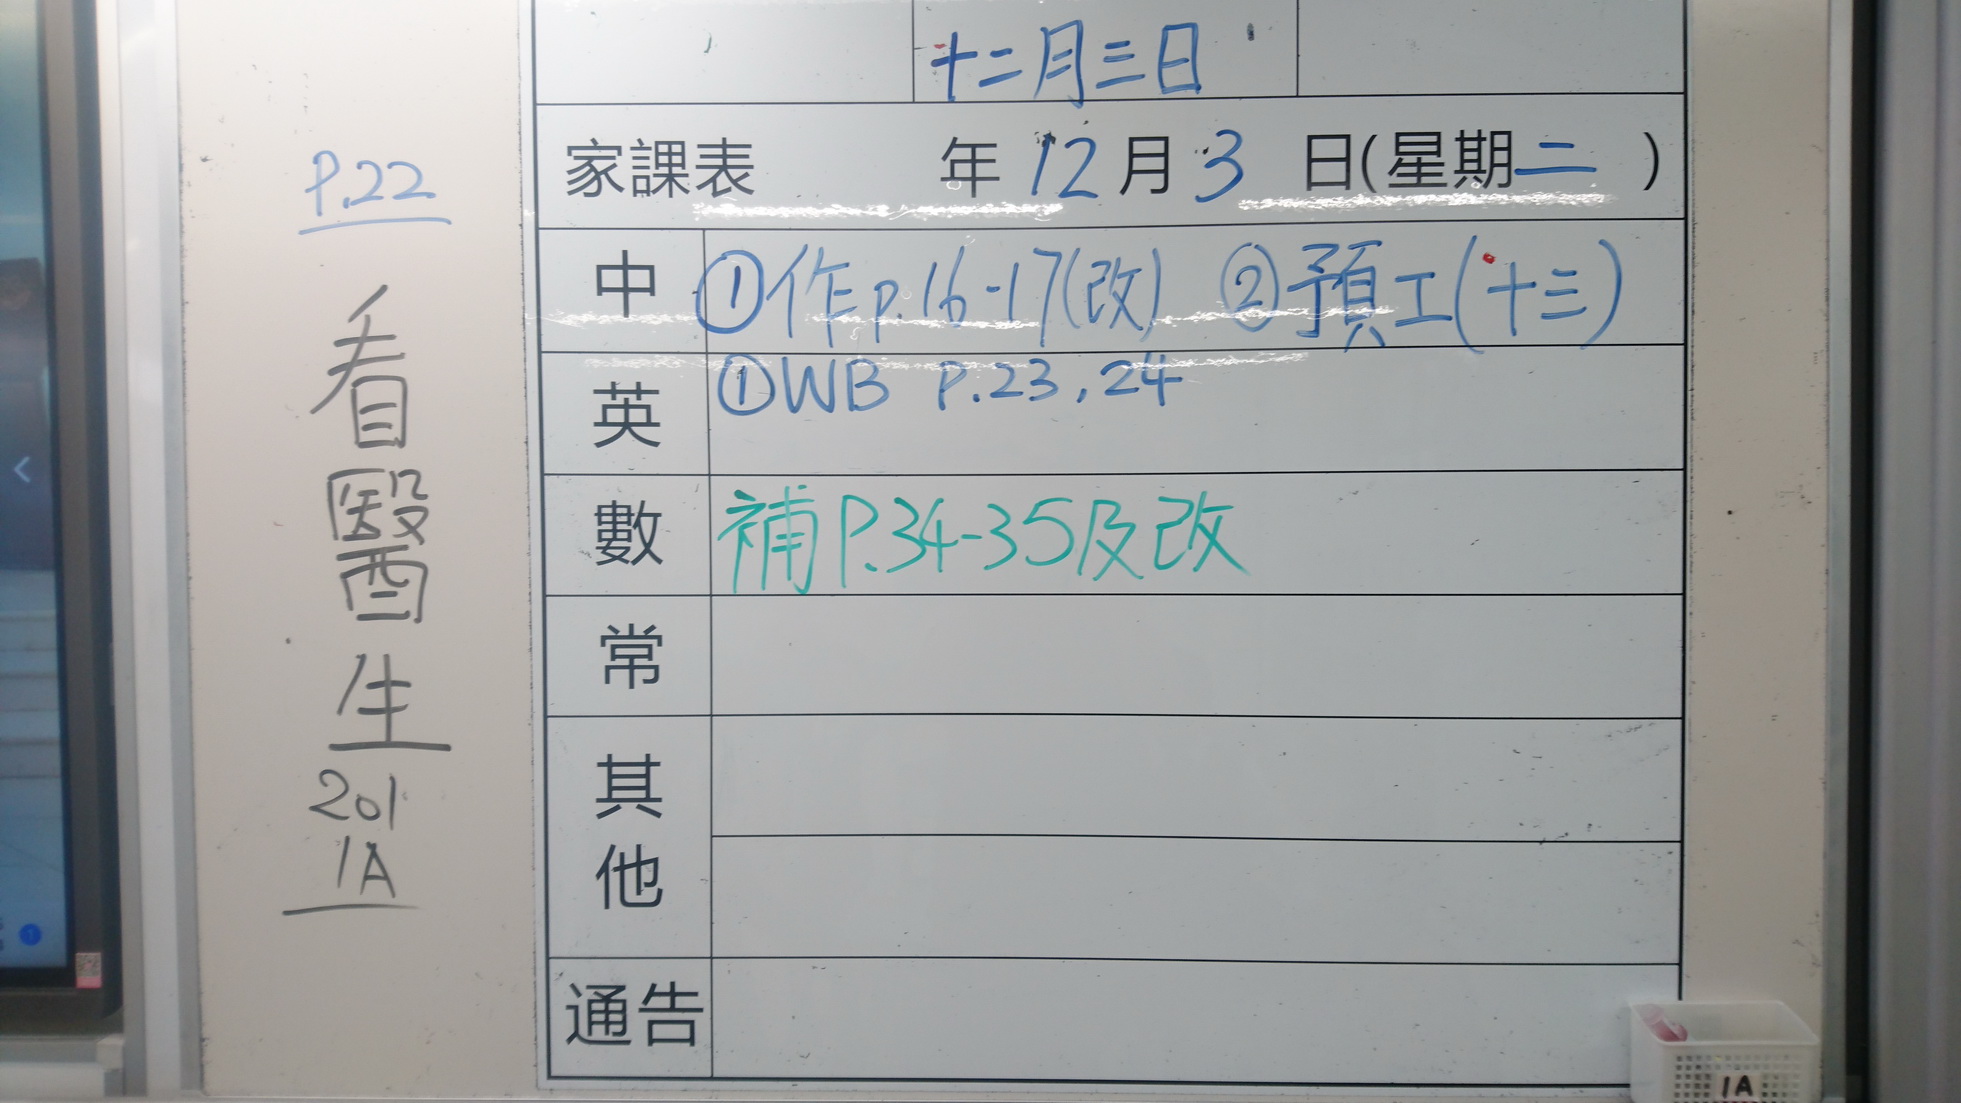 十二月三日
家課表 年12月3日(星期二)
中 ①作p.16-17(改) ②預工(十三)
英 ①WB P.23,24
數 補P.34-35及改
常
其他
通告
P.22
看醫生
201
1A
1A